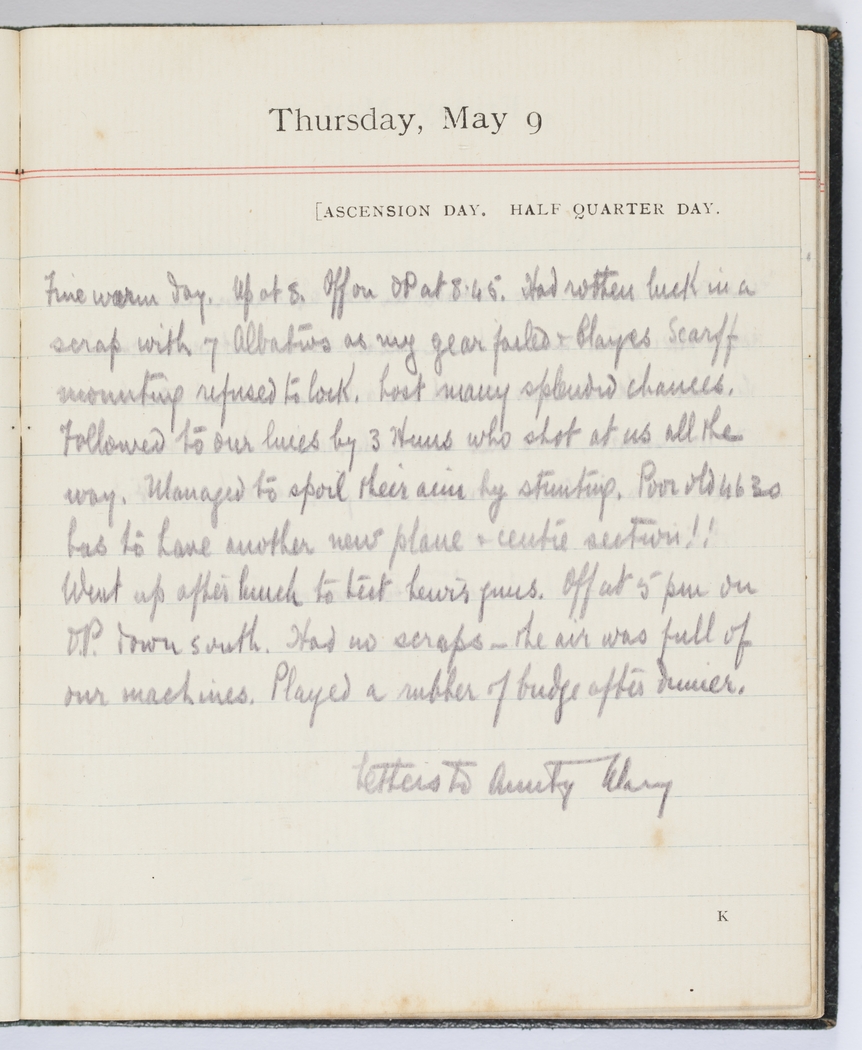 Thursday, May 9
[ASCENSION DAY. HALF QUARTER DAY.
Fine warm day. Up at 8. Off on OP at 8.45. Had rotten luck in a
scrap with 7 Albatros as my gear failed + Clayes Scarff
mounting refused to lock. Lost many splendid chances.
Followed to our lines by 3 Huns who shot at us all the
way. Managed to spoil their aim by stunting. Poor old 4630
has to have another new plane + centre section!!
Went up after lunch to test Lewis guns. Off at 5 pm on
OP. down south. Had no scraps – the air was full of
our machines. Played a rubber of bridge after dinner.
Letters to Aunty Mary
K